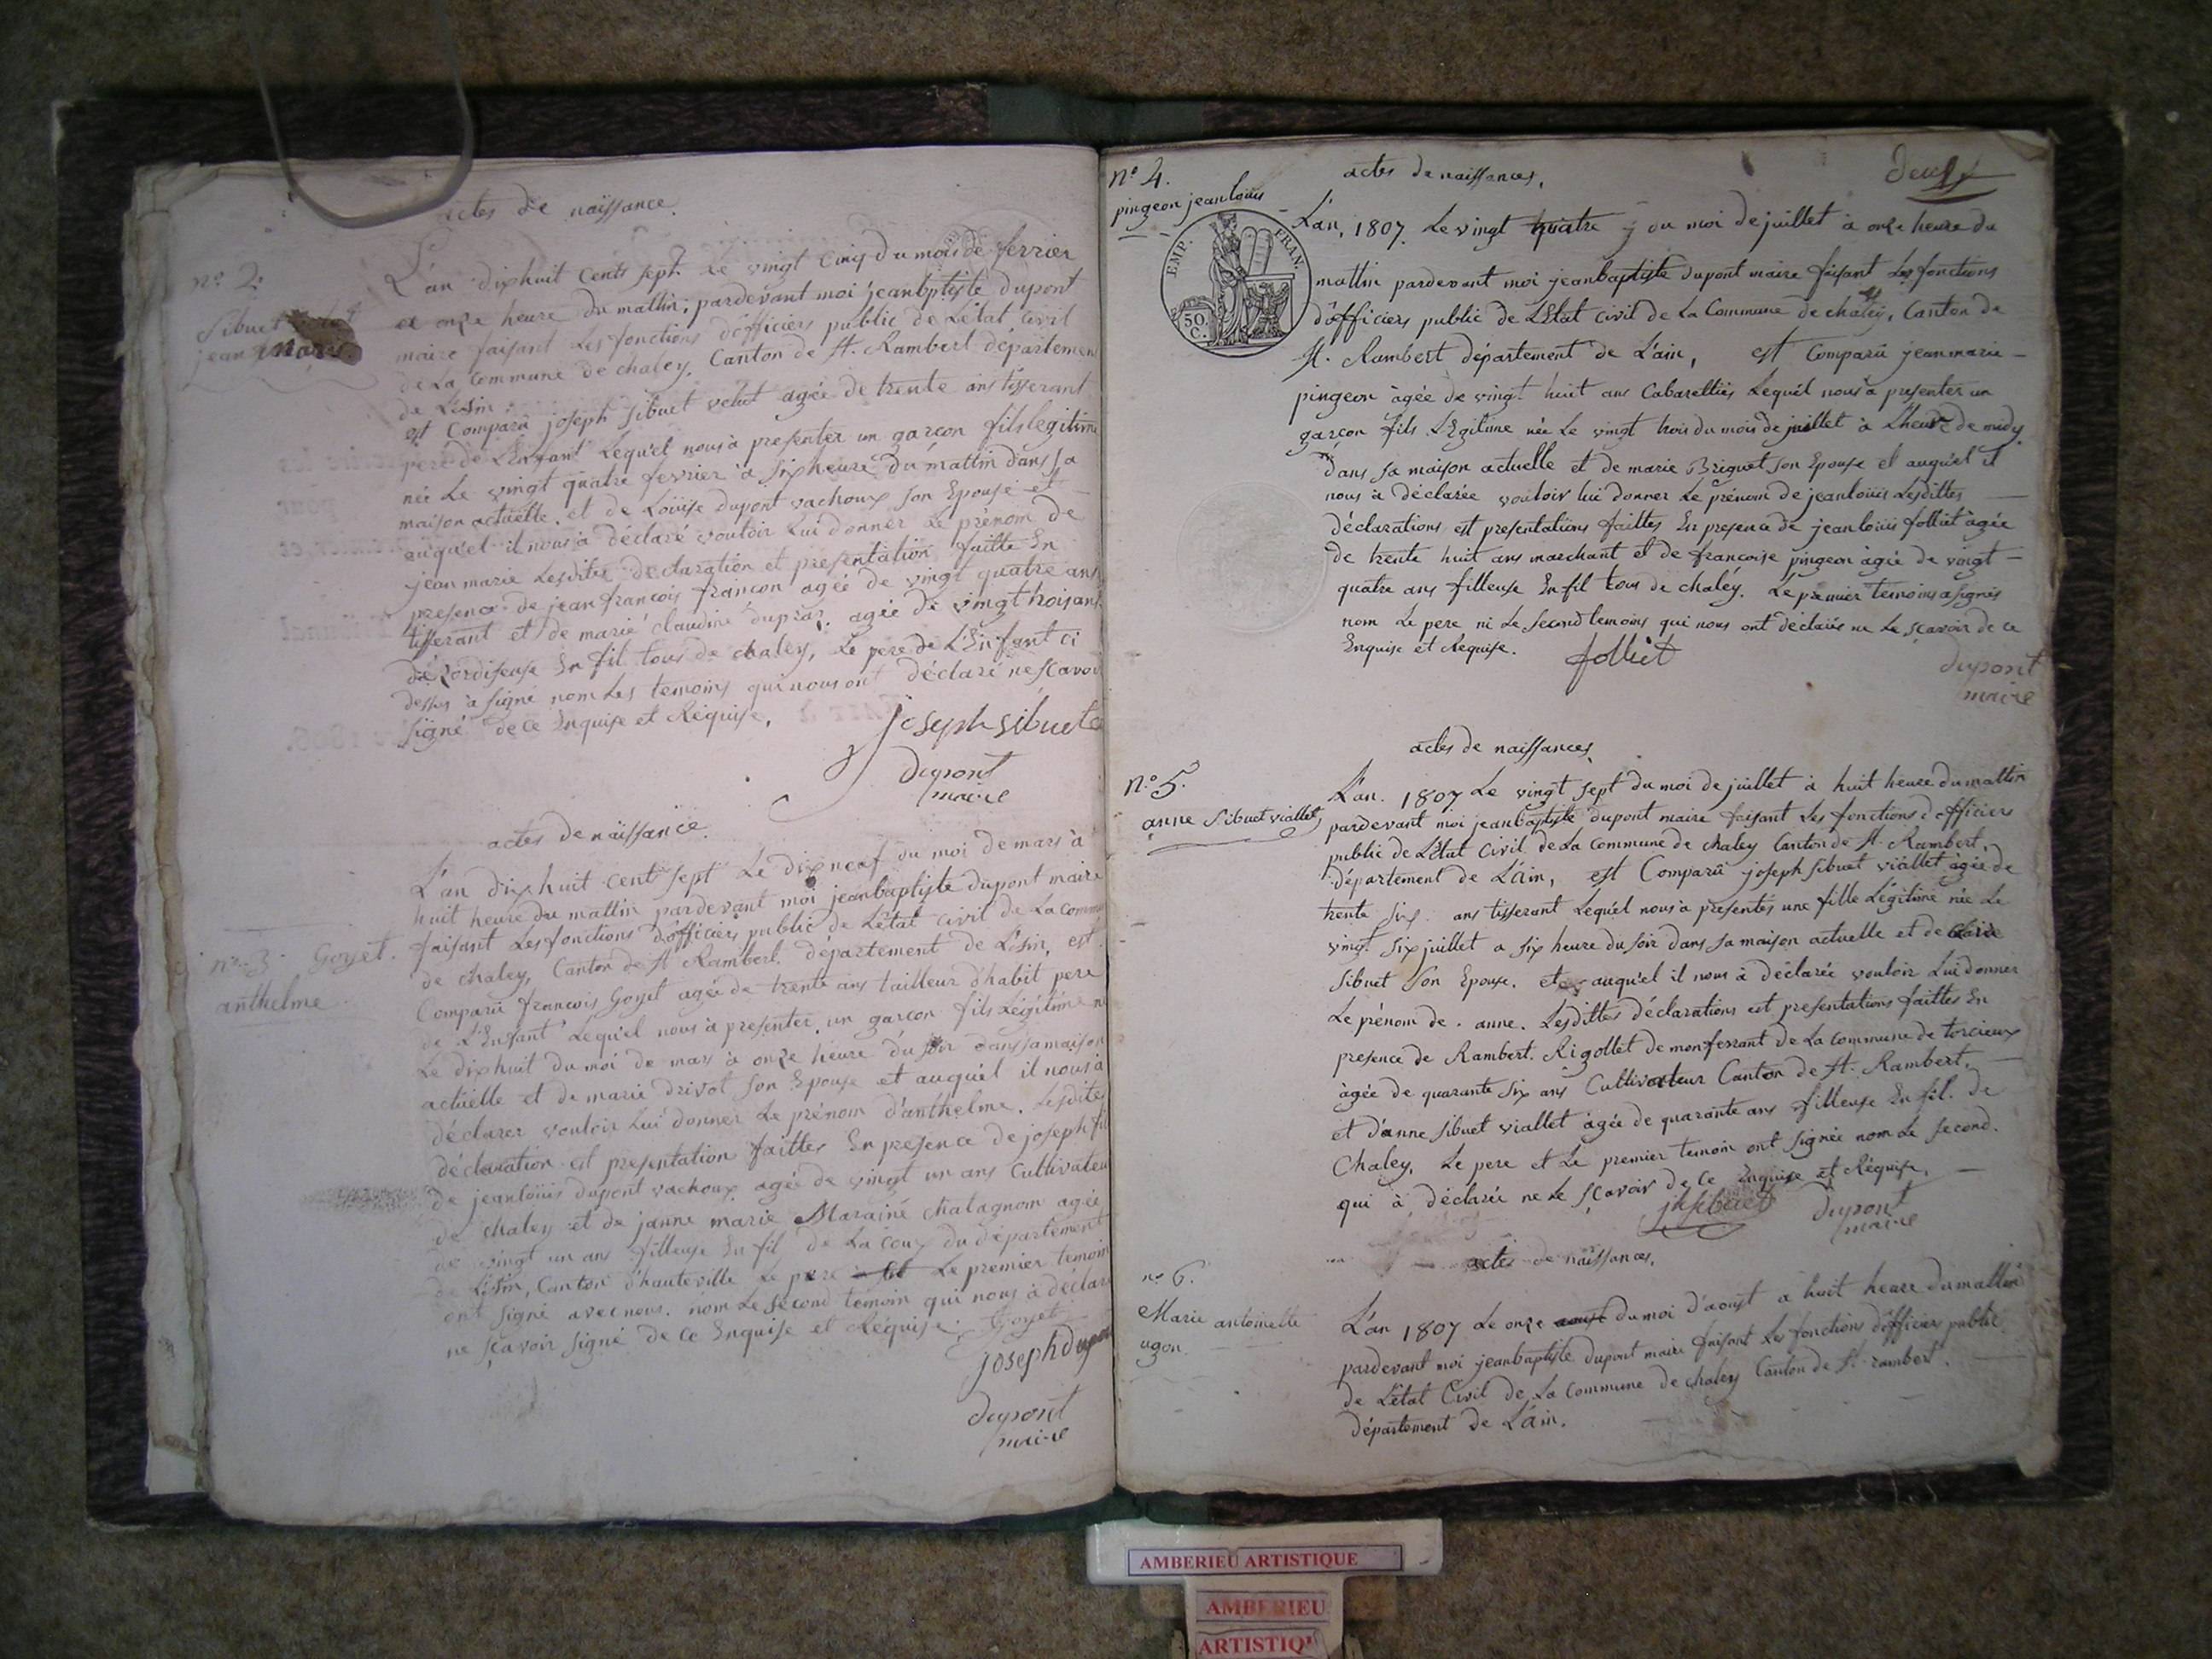 actes de naissance.
n.° 2.
Sibuet
jean marie.
L'an dixhuit cents sept. Le vingt cinq du mois de fevrier
et onze heure du mattin, pardevant moi jeanbptiste dupont
maire faisant Les fonctions d'officiers public de L'état civil
de La Commune de chaley, Canton de St. Rambert département
de L'ain,
est Comparû joseph sibuet velut agée de trente ans tisserant
pere de L'Enfant Lequ'el nous à presenter un garçon fils legitime
née Le vingt quatre fevrier à six heure du mattin dans sa
maison actuelle. et de Loüise dupont vachoux son Epouse et
auqu'el il nous à déclaré vouloir Lui donner Le prénom de
jean marie Lesdites declaration et presentation faitte En
presence de jean francois françon agée de vingt quatre ans
tisserant et de marie claudine dupraz. agée de vingt trois ans
En fil tous de chaley, Le pere de L'Enfant ci
dessus à signé nom Les temoins qui nous ont déclaré ne sçavoir
signé de ce Enquise et Réquise,
joseph sibuet
dupont
maire
actes de naissance.
n.° 3. Goyet.
anthelme
L'an dix huit cent sept Le dix neuf du moi de mars à
huit heure du mattin pardevant moi jeanbaptiste dupont maire
faisant Les fonctions d'officiers public de L'état civil de La commune
de chaley, Canton de St Rambert. département de L'ain, est
Comparû francois Goyet agée de trente ans tailleur d'habit pere
de L'Enfant Lequ'el nous à presenter un garçon fils Légitime né
Le dixhuit du moi de mars à onze heure du soir dans sa maison
actuelle et de marie drivot son Epouse et auquel il nous à
déclarer vouloir Lui donner Le prénom d'anthelme. Lesdites
déclaration est presentation faittes En presence de joseph fils
de jeanloüis dupont vachoux agée de vingt un ans Cultivateur
de chaley et de janne marie Maraine chalagnom agée
de vingt un ans filleuse En fil de La coux du département
de L'ain, Canton d'hauteville Le pere Le premier temoin
ont signé avec nous. nom Le second temoin qui nous à déclaré
ne sçavoir signé de ce Enquise et Réquise. Goyet
joseph dupont
dupont
maire
n.° 4.
pingeon jean louis
actes de naissances,
deux
EMP. FRAN.
50 C.
L'an, 1807. Le vingt quatre du moi de juillet à onze heure du
mattin pardevant moi jeanbaptiste dupont maire faisant Les fonctions
d'officiers public de L'Etat civil de La Commune de chaley, Canton de
St. Rambert département de L'ain, est Comparû jean marie
pingeon àgée de vingt huit ans Cabarettier Lequ'el nous à presenter un
garçon fils Légitime née Le vingt trois du mois de juillet à L'heure de midy
dans sa maison actuelle et de marie Briguet son Epouse et auqu'el il
nous à déclarée vouloir lui donner Le prénom de jean loüis Lesdittes
déclarations est presentations faittes En presence de jean loüis folliet àgée
de trente huit ans marchant et de francoise pingeon àgée de vingt
quatre ans filleuse En fil tous de chaley. Le premier temoins a signés
nom Le pere ni Le second temoins qui nous ont déclarés ne Le sçavoir de ce
Enquise et Requise.
folliet
dupont
maire
actes de naissances,
n.° 5.
anne Sibuet viallet
L'an. 1807 Le vingt sept du moi de juillet à huit heure du mattin
pardevant moi jeanbaptiste dupont maire faisant Les fonctions d'officiers
public de L'état Civil de La Commune de chaley Canton de St. Rambert,
département de L'ain, est Comparû joseph sibuet viallet àgée de
trente six. ans tisserant Lequ'el nous à presentes une fille Légitime née Le
vingt six juillet a six heure du soir dans sa maison actuelle et de
sibuet son Epouse. et auqu'el il nous à déclarée vouloir Lui donner
Le prénom de. anne. Lesdittes déclarations est presentations faittes En
presence de Rambert. Rigollet de monferrant de La commune de torcieux
àgée de quarante six ans Cultivateur Canton de St. Rambert,
et d'anne sibuet viallet àgée de quarante ans filleuse En fil. de
Chaley, Le pere et Le premier temoin ont signée nom Le second.
qui à déclarée ne Le sçavoir de Ce Enquise et Réquise.
jh sibuet
dupont
maire
actes de naissances,
n.° 6.
Marie antoinette
ugon.
L'an 1807 Le onze aoust du moi d'aoust a huit heure du mattin
pardevant moi jeanbaptiste dupont maire faisant Les fonctions d'officier public
de L'état Civil de La Commune de chaley Canton de St. rambert.
département de L'ain.
AMBERIEU ARTISTIQUE
AMBERIEU
ARTISTIQU